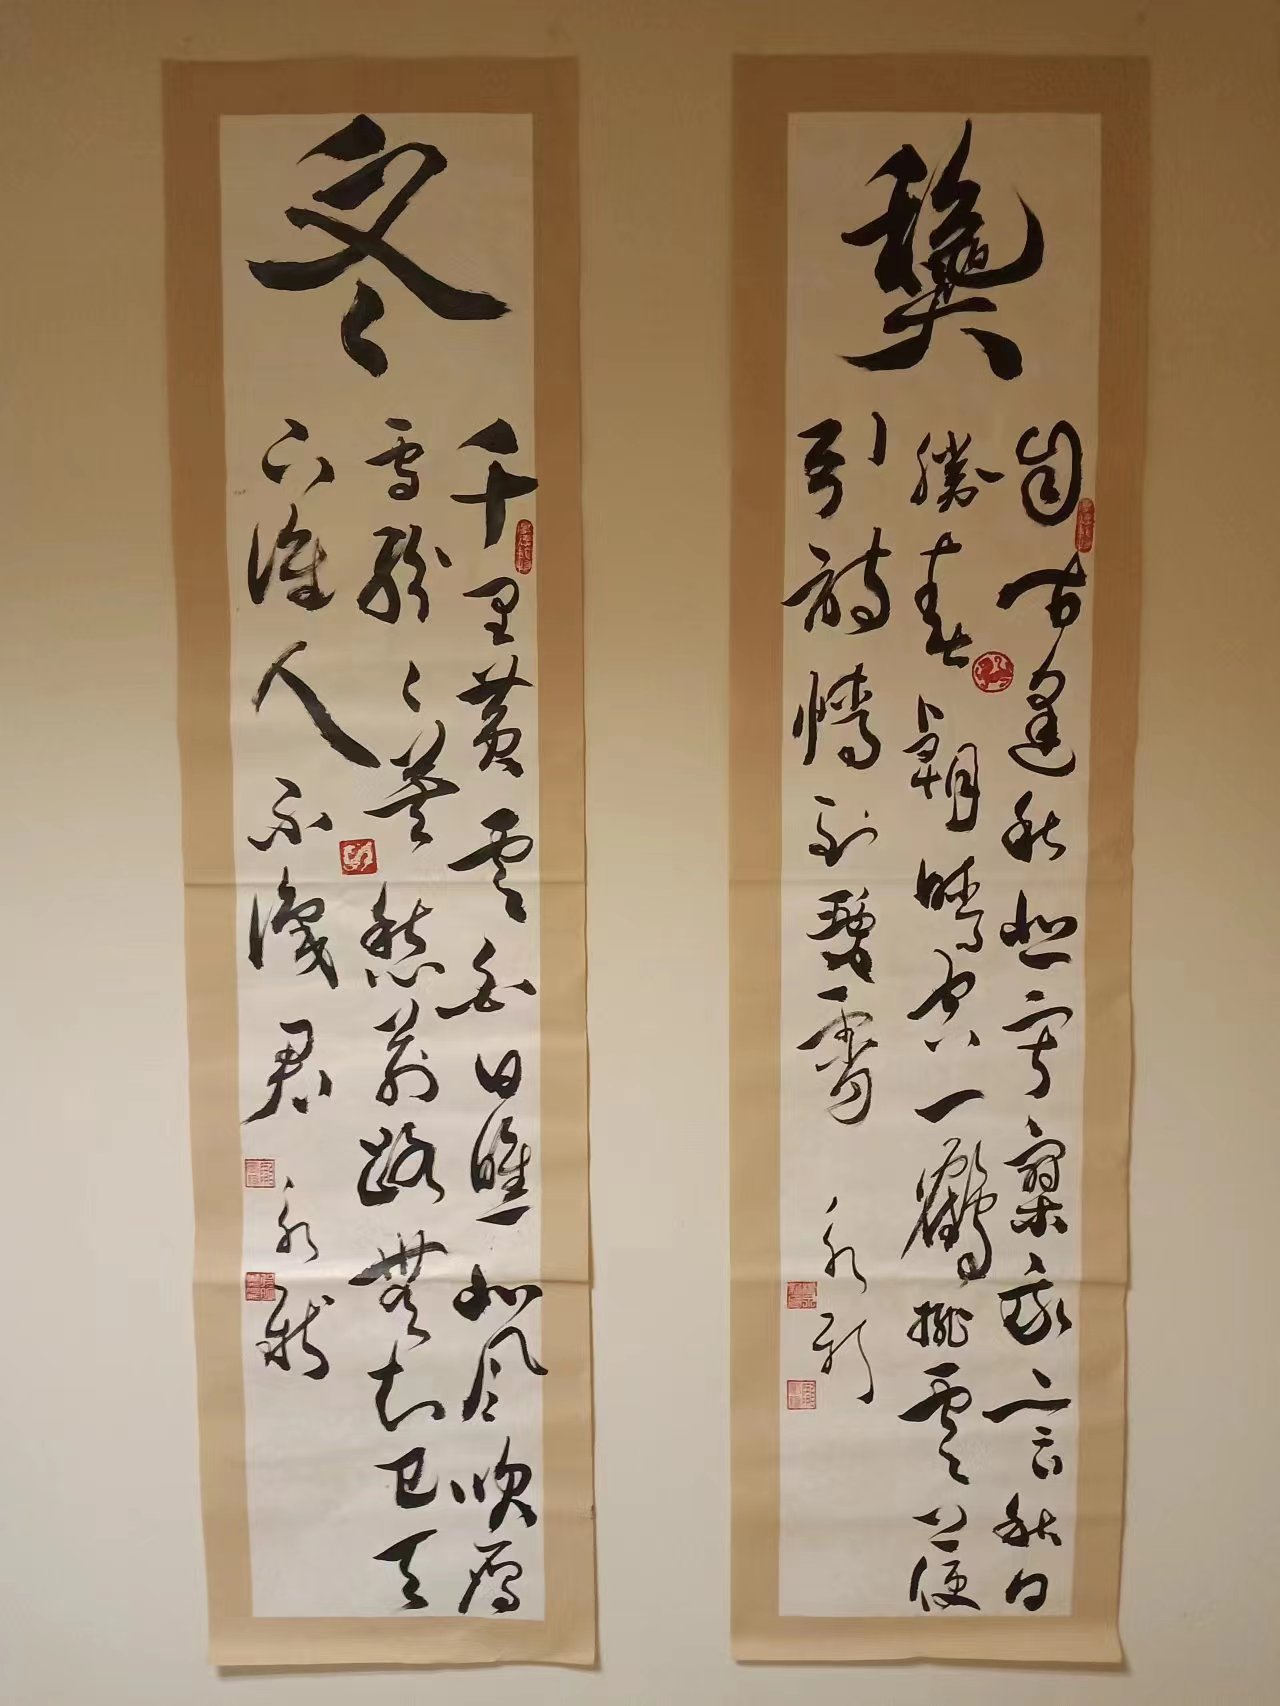 龝
自古逢秋悲寂寥我言秋日
勝春朝晴空一鶴排雲上便
引詩情到碧霄
永新
冬
千里黄雲白日曛北風吹雁
雪紛々莫愁前路無知己天
下誰人不識君
永新